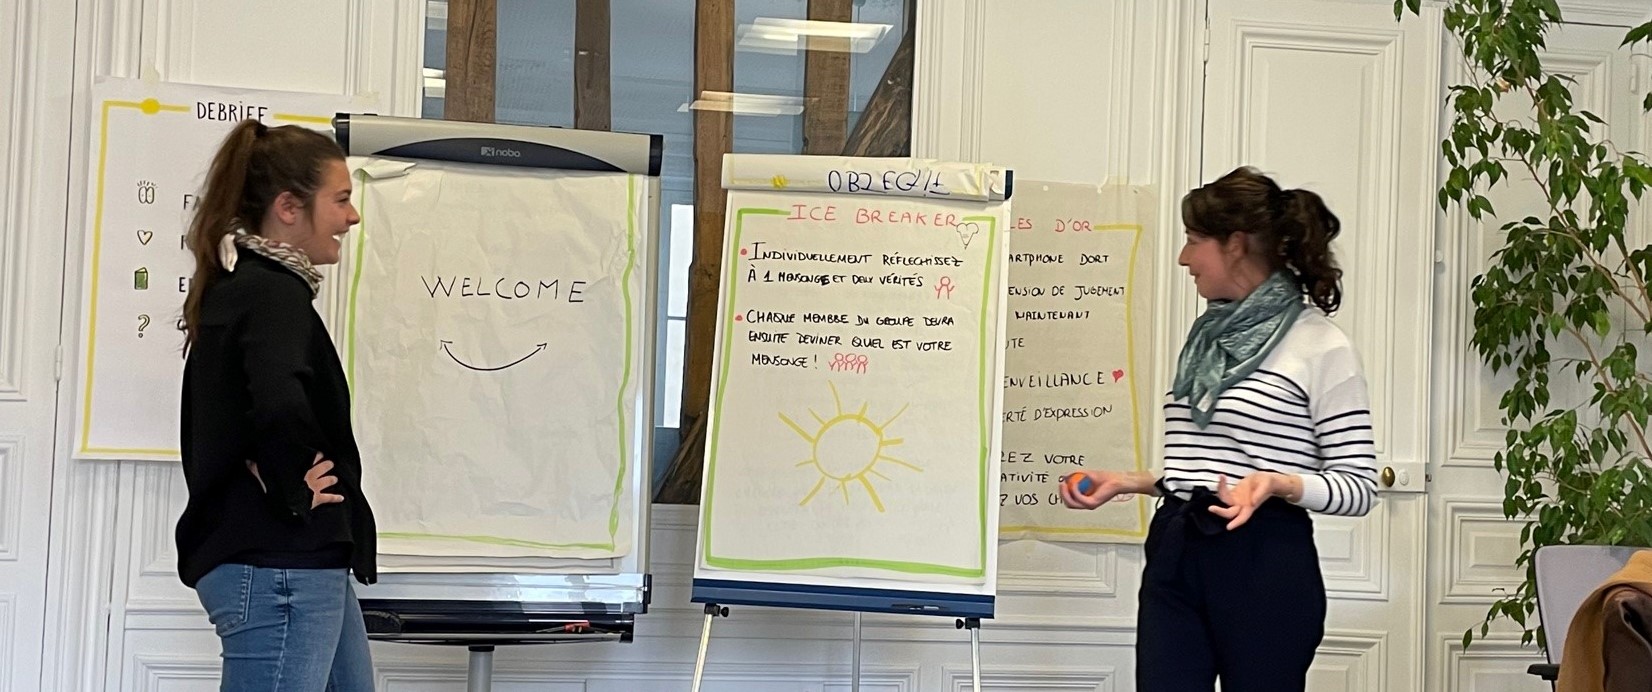 DEBRIEF
?
nobo
WELCOME
ICE BREAKER
• INDIVIDUELLEMENT RÉFLECHISSEZ
À 1 MENSONGE ET DEUX VÉRITÉS
• CHAQUE MEMBRE DU GROUPE DEVRA
ENSUITE DEVINER QUEL EST VOTRE
MENSONGE !
LES D'OR
ARTPHONE DORT
ENSION DE JUGEMENT
MAINTENANT
UTE
ENVEILLANCE
ERTÉ D'EXPRESSION
REZ VOTRE
ATIVITÉ
Z VOS CH